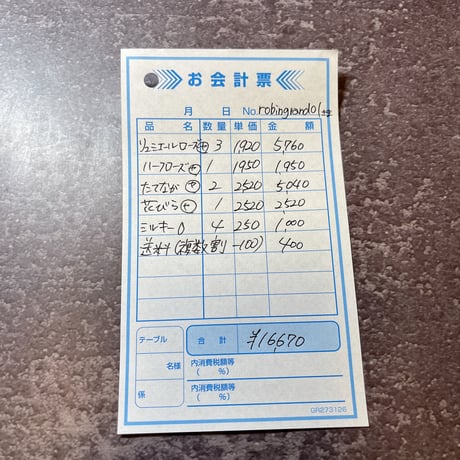 お会計票
月 日 No. robingrando1様
品名 数量 単価 金額
リュミエールローズ㊥ 3 1920 5,760
ハーフローズ㊥ 1 1950 1,950
たてなが 2 2520 5,040
花びら 1 2520 2,520
ミルキー 4 250 1,000
送料(複数割 -100) 400
テーブル 合計 ¥16,670
名様 内消費税額等
( %)
係 内消費税額等
( %)
GR273126